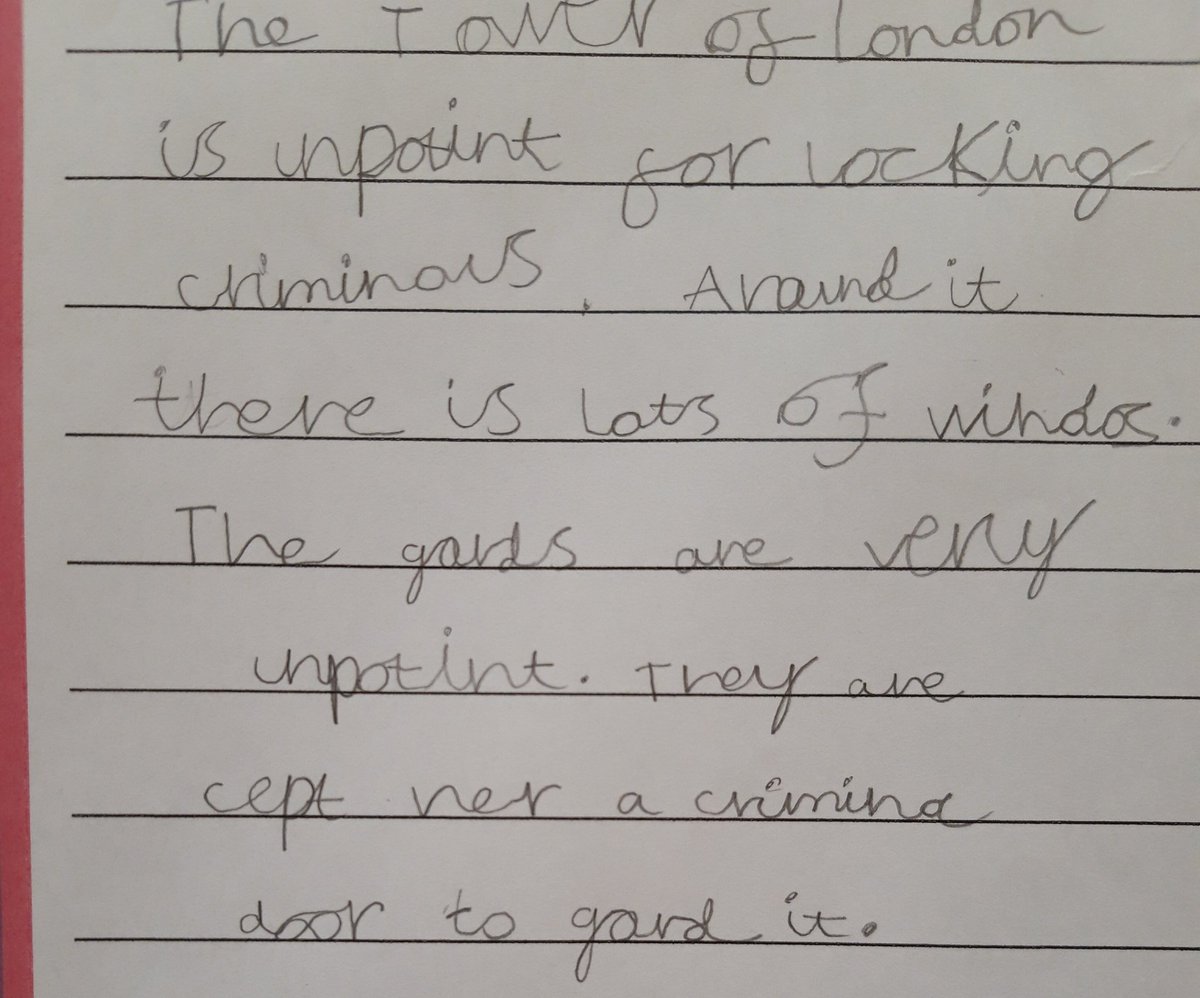 The Tower of London
is unpotint for locking
criminous. Around it
there is lots of windos.
The gards are very
unpotint. They are
cept ner a crimina
door to gard it.